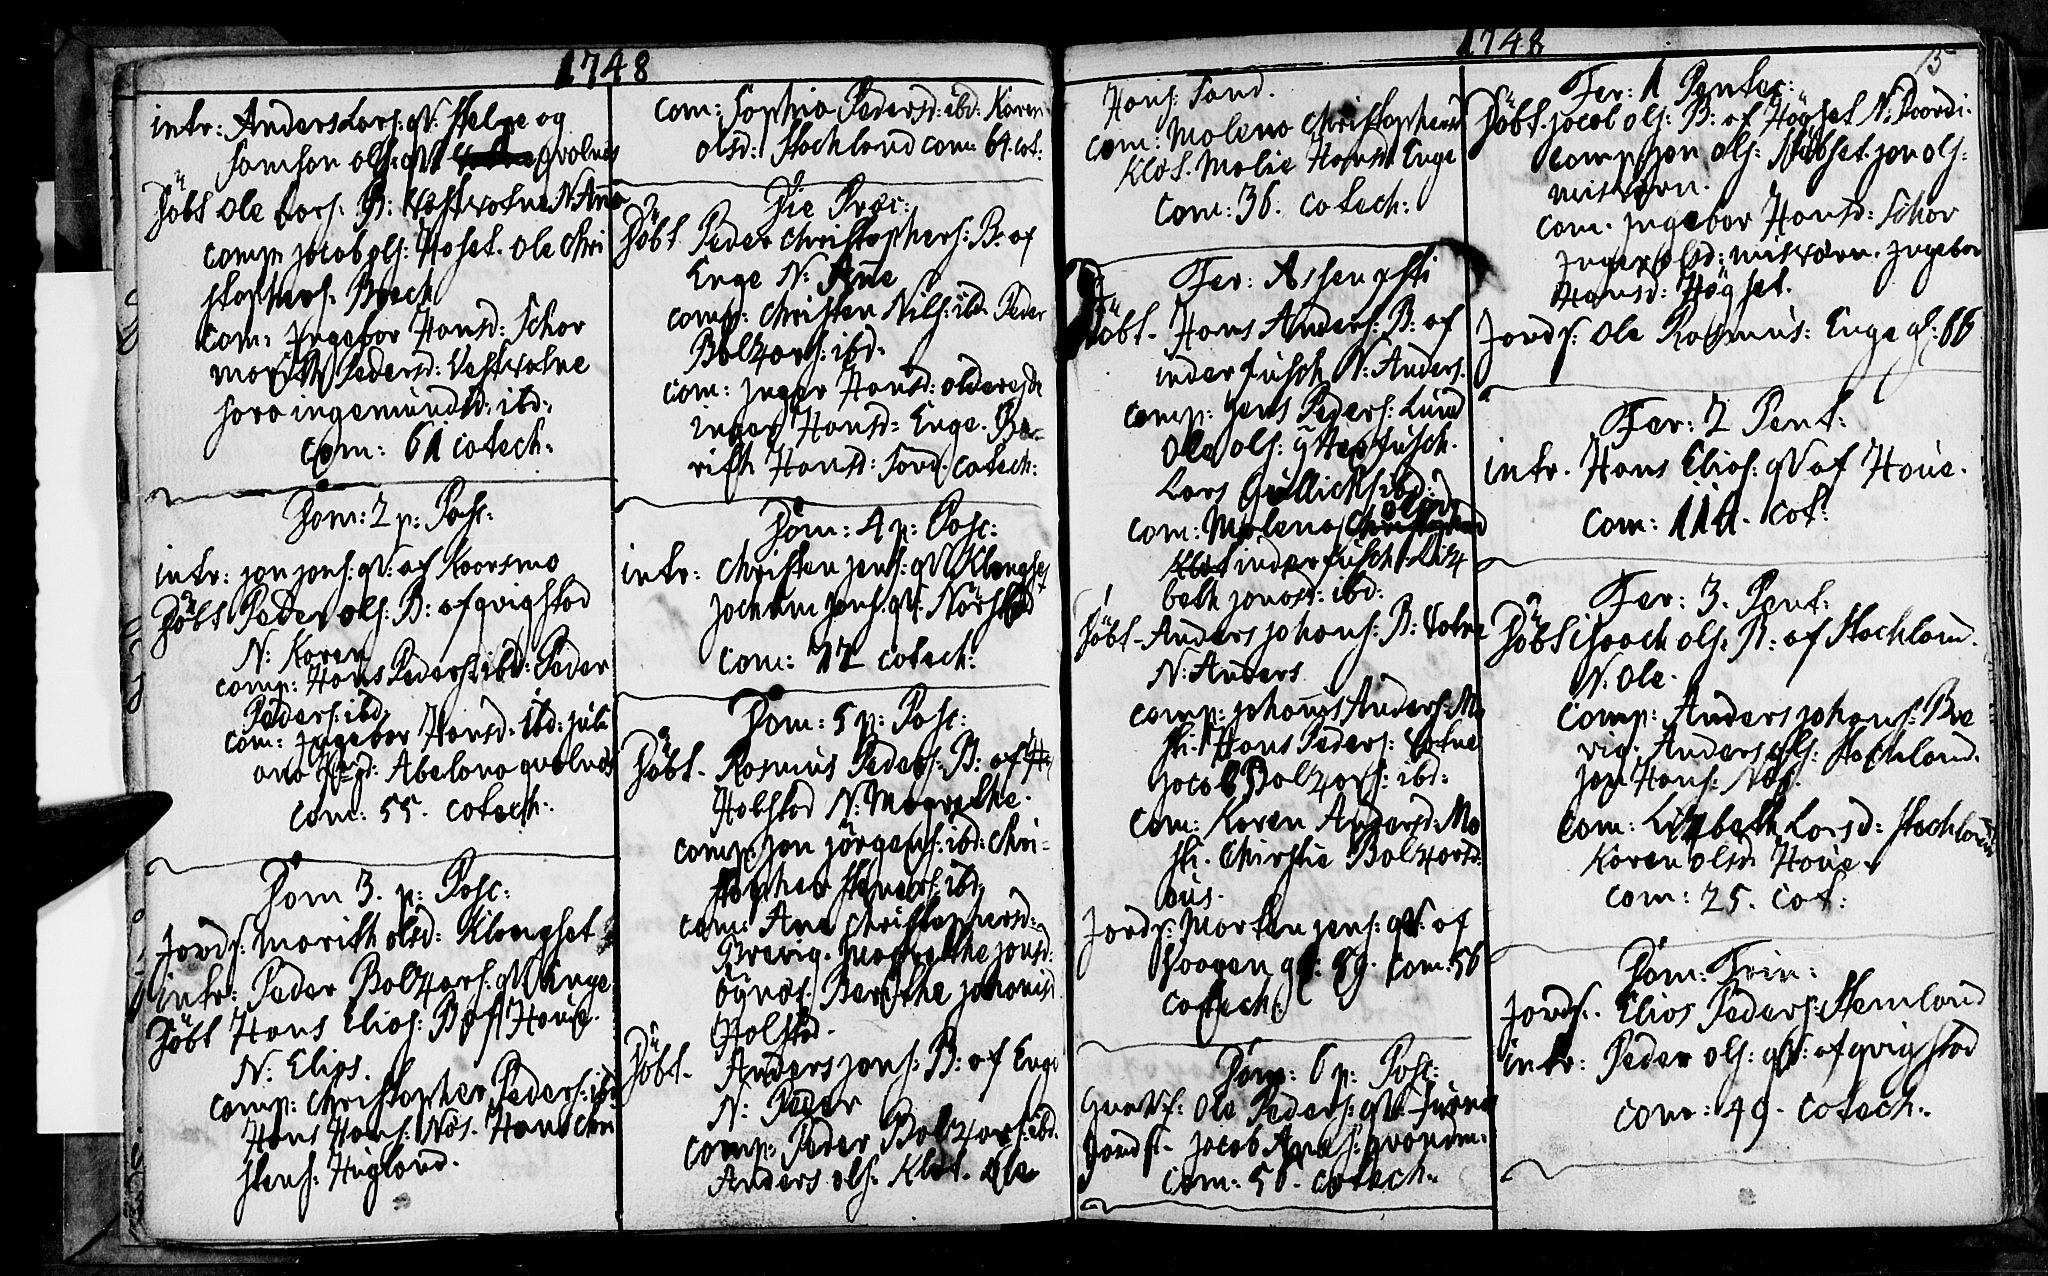 1748
intr: Anders Lars: qv: Helge og
Samson ols: qv: qvalnæs
Döbt Ole Lars: B: Vestvatne N. Ana
comp: jacob ols: Höset. Ole Chri
stophers: Brech
com: Ingebor Hansd: Schar
marith Pedersd: Vestvatne
Sara ingemundsd: ibd:
com: 61 catech:
Dom: 2 p: Pasc:
intr: jon jons: qv: af Kaarsmo
Döbt Peder ols: B: af qvigstad
N: Karen
comp: Hans Peders: ibd: Peder
Peders: ibd:
com: Ingebor Hansd: ibd: juli
ana Abelona qvalnæs
com: 55. catech:
Dom 3. p: Pasc:
Jords: marith olsd: Klengset
intr: Peder Baltzars: qv: Enge
Döbt Hans Elias: B: af Houe.
N: Elias.
comp: Christopher Peders: ibd:
Hans Hans: Næs. Hans Chri
stens: Hugland.
com: Sophia Pedersd: ibd: Karen
olsd: Stochland com: 64. cat:
Die Præc:
Döbt Peder Christophers: B: af
Enge N: Ane
comp: Christen Nils: ibd: Peder
Baltzars: ibd:
com: Inger Hansd:
inger Hansd: Enge. Be-
rith Hansd: Sand. catech:
Dom: 4 p: Pasc:
intr: Christen jens: qv: Klengset
jochum jons: qv: Nörstad
com: 72 catech:
Dom: 5 p: Pasc:
Döbt. Rasmus Peders: B: af
Halstad N: Magrethe.
comp: jon jörgens: ibd: Chri-
stopher Steners: ibd:
com: Ane Christophersd:
Brevig. magrethe jonsd:
Ögnæs. Berethe johanisd
Halstad.
Döbt. Anders jons: B: af Enge
N: Peder
comp: Peder Baltzars: ibd.
Anders ols: Klöt. Ole
1748
5
Hans: Sand.
com: Malena Christophersd
Klöt. Malie Hansd: Enge
com: 36. catech:
Fer: Assensti
Döbt. Hans Anders: B: af
inderfusch N: Anders.
comp: jens Peders: Lund
Ole ols: ytterfusch.
Lars Gullichs: ibd:
com: Malena olsd
inderfusch. Litz
beth jonasd: ibd:
Döbt. Anders johans: B: Vatne
N: Anders
comp: johannis Anders: Mo
sti. Hans Peders: Vatne
jacob Baltzars: ibd:
com: Karen Andersd: Mo
sti. Chirstie Baltzarsd:
Jords: Morten jens: qv: af
Haagen gl: 59. com: 56
catech:
Dom: 6 p: Pasc:
Ole Peders: qv:
Jords. jacob
com: 50. catech:
Fer: 1 Pentec:
Döbt. jacob ols: B: af Högset N:
comp: jon ols: Stubset. jon ols:
misværn.
com. Ingebor Hansd: Schar
Inger olsd: misværn. Ingebor
Hansd: Högset.
Jords: Ole Rasmus: Enge gl: 66
Fer: 2 Pent:
intr. Hans Elias: qv: af Houe.
com: 111. cat:
Fer: 3. Pent:
Döbt isaach ols: B: af Stochland.
N: Ole.
comp: Anders johans: Bre
vig. Anders ols: Stochland.
jon Hans: Næs.
com: Litzbeth Larsd: Stochland
Karen olsd: Houe.
com: 25. cat:
Dom: Trin:
Jords. Elias Peders: Stemland
intr: Peder ols: qv: af qvigstad
com: 49. catech: